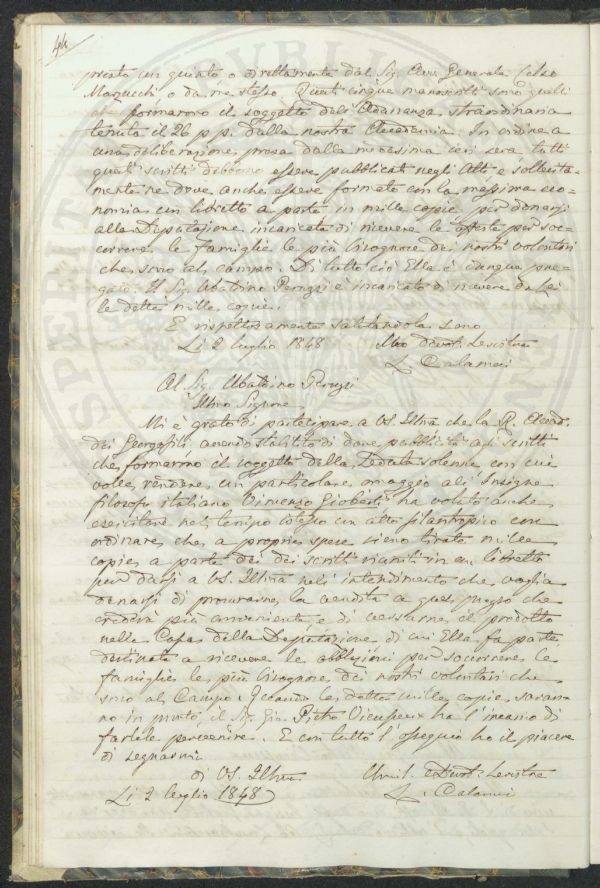 44
un quinto o direttamente dal Sig. Cav. Generale Celso
Marzucchi o da me stesso. Questi cinque manoscritti sono quelli
che formarono il soggetto dell' Adunanza straordinaria
tenuta il 26 p. p. dalla nostra Accademia. In ordine a
una deliberazione presa dalla medesima ieri sera tutti
questi scritti debbono essere pubblicati negli Atti e sollecita=
mente ne deve anche essere formato con la massima eco=
nomia un libretto a parte in mille copie per donarsi
alla Deputazione incaricata di ricevere le offerte per soc=
correre le famiglie le più bisognose dei nostri volontari
che sono al campo. Di tutto ciò Ella è dunque pre=
gato. Il Sig. Ubaldino Peruzzi è incaricato di ricevere da Lei
le dette mille copie.
E rispettosamente salutandola sono
Li 2 luglio 1848 Suo Devot. Servitore
L. Calamai
Al Sig. Ubaldino Peruzzi
Illmo Signore
Mi è grato di partecipare a VS. Illma che la R. Accad.
dei Georgofili avendo stabilito di dare pubblicità agli scritti
che formarono il soggetto della Seduta solenne con cui
volle rendere un particolare omaggio all' Insigne
filosofo italiano Vincenzo Gioberti ha voluto anche
esercitare nel tempo istesso un atto filantropico con
ordinare che a proprie spese sieno tirate mille
copie a parte dei dei scritti riuniti in un libretto
per darsi a VS. Illma nell' intendimento che voglia
denarsi di procurarne la vendita a quel prezzo che
crederà più conveniente e di versarne il prodotto
nella Cassa della Deputazione di cui Ella fa parte
destinata a ricevere le obblazioni per soccorrere le
famiglie le più bisognose dei nostri volontari che
sono al Campo. Quando le dette mille copie saran=
no in punto, il Sig. Gio. Pietro Vieusseux ha l' incarico di
fartele pervenire. E con tutto l' ossequio ho il piacere
di segnarmi
di VS. Illma Umil. Devot. Servitore
Li 2 luglio 1848 L. Calamai